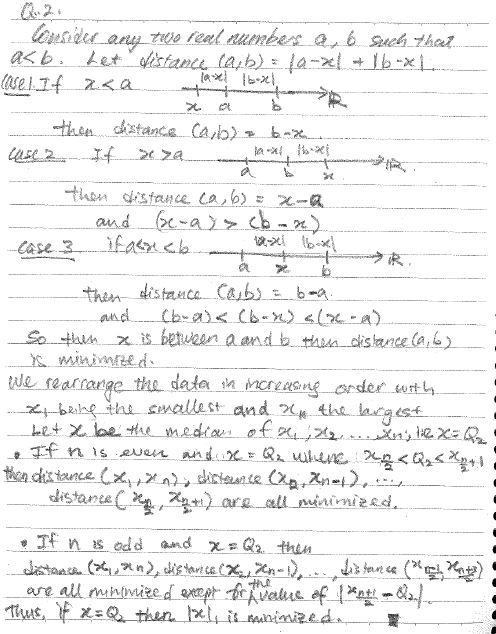 Q.2.
Consider any two real numbers a, b such that
a<b. Let distance (a,b) = |a-x| + |b-x|.
Case 1. If x<a |a-x| |b-x|
x a b R
then distance (a,b) = b-x.
Case 2 If x>a |a-x| |b-x| R
a b x
then distance (a,b) = x-a
and (x-a) > (b-x)
Case 3 if a<x<b |a-x| |b-x|
a x b R
then distance (a,b) = b-a
and (b-a) < (b-x) < (x-a)
So then x is between a and b then distance(a,b)
is minimized.
We rearrange the data in increasing order with
x₁ being the smallest and xₙ the largest
Let x be the median of x₁, x₂, ... xₙ, i.e x = Q₂
• If n is even and x = Q₂ where x_{n/2} < Q₂ < x_{n/2+1}
then distance (x₁, xₙ), distance (x₂, xₙ₋₁), ...,
distance (x_{n/2}, x_{n/2+1}) are all minimized.
• If n is odd and x = Q₂ then
distance (x₁, xₙ), distance (x₂, xₙ₋₁), ..., distance (x_{n-1/2}, x_{n+3/2})
are all minimized except for the value of |x_{n+1/2} - Q₂|.
Thus, if x = Q₂ then |x|₁ is minimized.